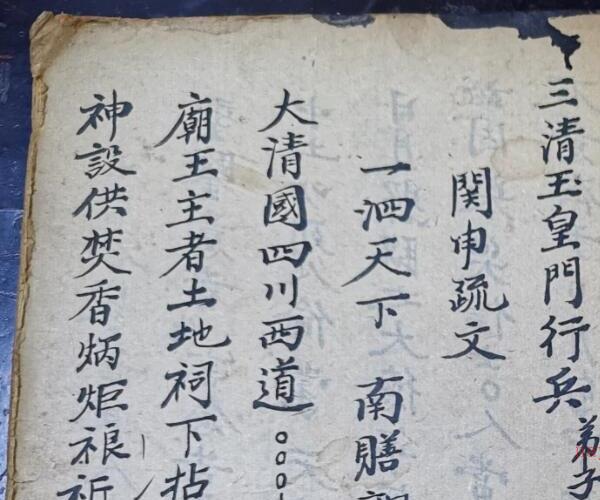 三清玉皇門行兵弟子
関申疏文
一泗天下 南贍
大清國四川西道○○○
廟王主者土地祠下拈
神設供焚香炳炬